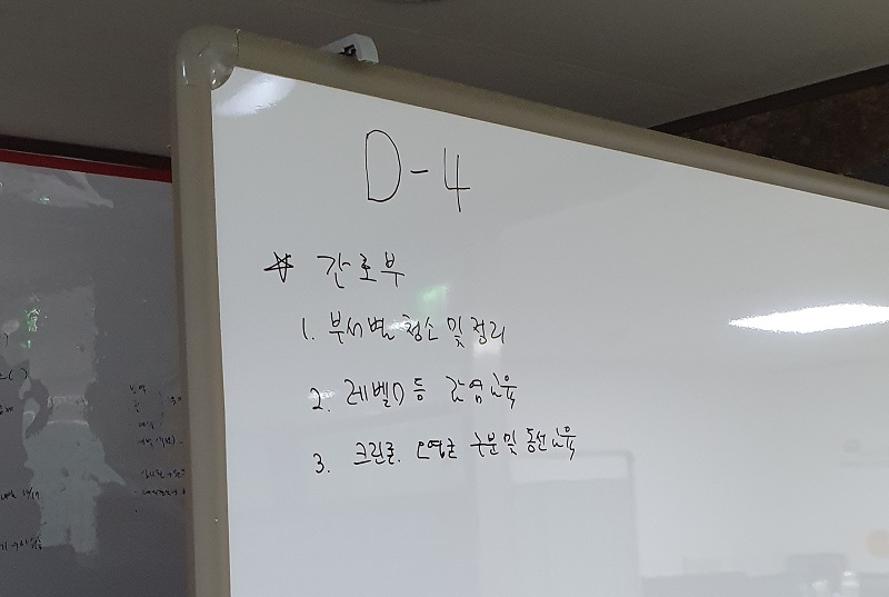 D-4
☆ 간호부
1. 부서별 청소 및 정리
2. 레벨D 등 감염교육
3. 크린존, 오염존 구분 및 동선교육